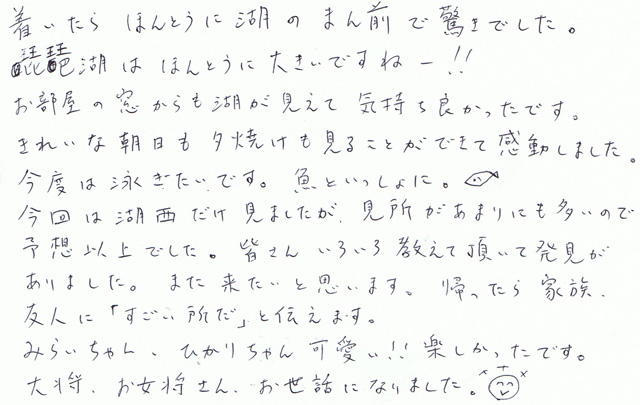 着いたら ほんとうに湖のまん前で驚きでした。
琵琶湖は ほんとうに大きいですねー!!
お部屋の窓からも湖が見えて 気持ち良かったです。
きれいな朝日も夕焼けも見ることができて感動しました。
今度は泳ぎたいです。魚といっしょに。
今回は湖西だけ見ましたが、見所があまりにも多いので
予想以上でした。皆さん いろいろ教えて頂いて発見が
ありました。また来たいと思います。帰ったら家族、
友人に「すごい所だ」と伝えます。
みらいちゃん、ひかりちゃん可愛い!! 楽しかったです。
大将、お女将さん、お世話になりました。